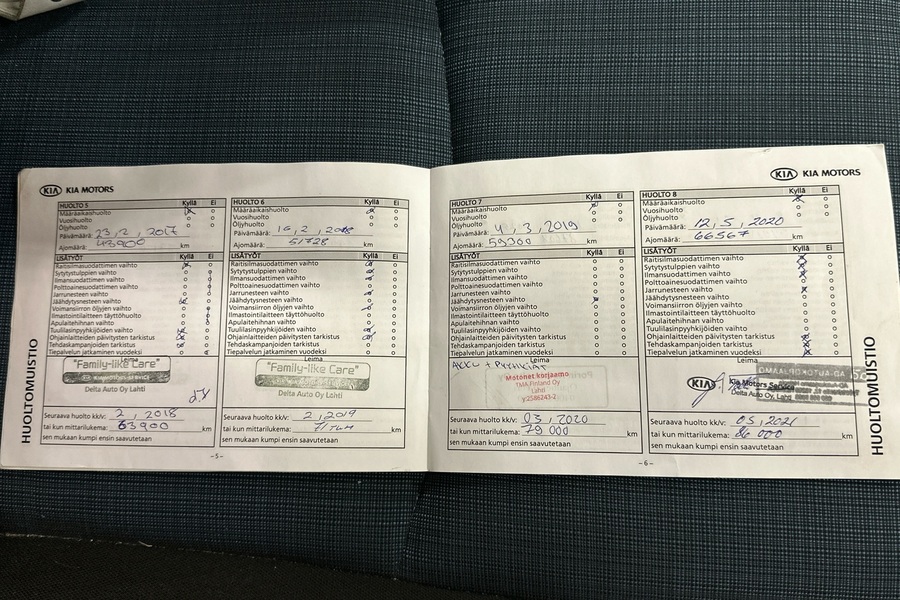 KIA KIA MOTORS
HUOLTO 5 Kyllä Ei
Määräaikaishuolto
Vuosihuolto
Öljyhuolto
Päivämäärä: 23, 2, 2017
Ajomäärä: km
LISÄTYÖT Kyllä Ei
Raitisilmasuodattimen vaihto
Sytytystulppien vaihto
Ilmansuodattimen vaihto
Polttoainesuodattimen vaihto
Jarrunesteen vaihto
Jäähdytysnesteen vaihto
Voimansiirron öljyjen vaihto
Ilmastointilaitteen täyttöhuolto
Apulaitehihnan vaihto
Tuulilasinpyyhkijöiden vaihto
Ohjainlaitteiden päivitysten tarkistus
Tehdaskampanjoiden tarkistus
Tiepalvelun jatkaminen vuodeksi
Leima
"Family-like Care"
Delta Auto Oy Lahti
Seuraava huolto kk/v: 2, 2018
tai kun mittarilukema: 63900 km
sen mukaan kumpi ensin saavutetaan
HUOLTOMUISTIO
-5-
HUOLTO 6 Kyllä Ei
Määräaikaishuolto
Vuosihuolto
Öljyhuolto
Päivämäärä: 2, 2018
Ajomäärä: 51728 km
LISÄTYÖT Kyllä Ei
Raitisilmasuodattimen vaihto
Sytytystulppien vaihto
Ilmansuodattimen vaihto
Polttoainesuodattimen vaihto
Jarrunesteen vaihto
Jäähdytysnesteen vaihto
Voimansiirron öljyjen vaihto
Ilmastointilaitteen täyttöhuolto
Apulaitehihnan vaihto
Tuulilasinpyyhkijöiden vaihto
Ohjainlaitteiden päivitysten tarkistus
Tehdaskampanjoiden tarkistus
Tiepalvelun jatkaminen vuodeksi
Leima
"Family-like Care"
Delta Auto Oy Lahti
Seuraava huolto kk/v: 2, 2019
tai kun mittarilukema: km
sen mukaan kumpi ensin saavutetaan
KIA KIA MOTORS
HUOLTO 7 Kyllä Ei
Määräaikaishuolto
Vuosihuolto
Öljyhuolto
Päivämäärä: 4, 3, 2019
Ajomäärä: 59300 km
LISÄTYÖT Kyllä Ei
Raitisilmasuodattimen vaihto
Sytytystulppien vaihto
Ilmansuodattimen vaihto
Polttoainesuodattimen vaihto
Jarrunesteen vaihto
Jäähdytysnesteen vaihto
Voimansiirron öljyjen vaihto
Ilmastointilaitteen täyttöhuolto
Apulaitehihnan vaihto
Tuulilasinpyyhkijöiden vaihto
Ohjainlaitteiden päivitysten tarkistus
Tehdaskampanjoiden tarkistus
Tiepalvelun jatkaminen vuodeksi
Leima
AKKU + PYYHKIJÄT
Motonet korjaamo
TMA Finland Oy
Lahti
y:2586243-2
Seuraava huolto kk/v: 03, 2020
tai kun mittarilukema: 79 000 km
sen mukaan kumpi ensin saavutetaan
-6-
HUOLTO 8 Kyllä Ei
Määräaikaishuolto
Vuosihuolto
Öljyhuolto
Päivämäärä: 12, 5, 2020
Ajomäärä: 66567 km
LISÄTYÖT Kyllä Ei
Raitisilmasuodattimen vaihto
Sytytystulppien vaihto
Ilmansuodattimen vaihto
Polttoainesuodattimen vaihto
Jarrunesteen vaihto
Jäähdytysnesteen vaihto
Voimansiirron öljyjen vaihto
Ilmastointilaitteen täyttöhuolto
Apulaitehihnan vaihto
Tuulilasinpyyhkijöiden vaihto
Ohjainlaitteiden päivitysten tarkistus
Tehdaskampanjoiden tarkistus
Tiepalvelun jatkaminen vuodeksi
Leima
KIA Kia Motors Service
Delta Auto Oy, Lahti
Seuraava huolto kk/v: 05, 2021
tai kun mittarilukema: 86 000 km
sen mukaan kumpi ensin saavutetaan
HUOLTOMUISTIO